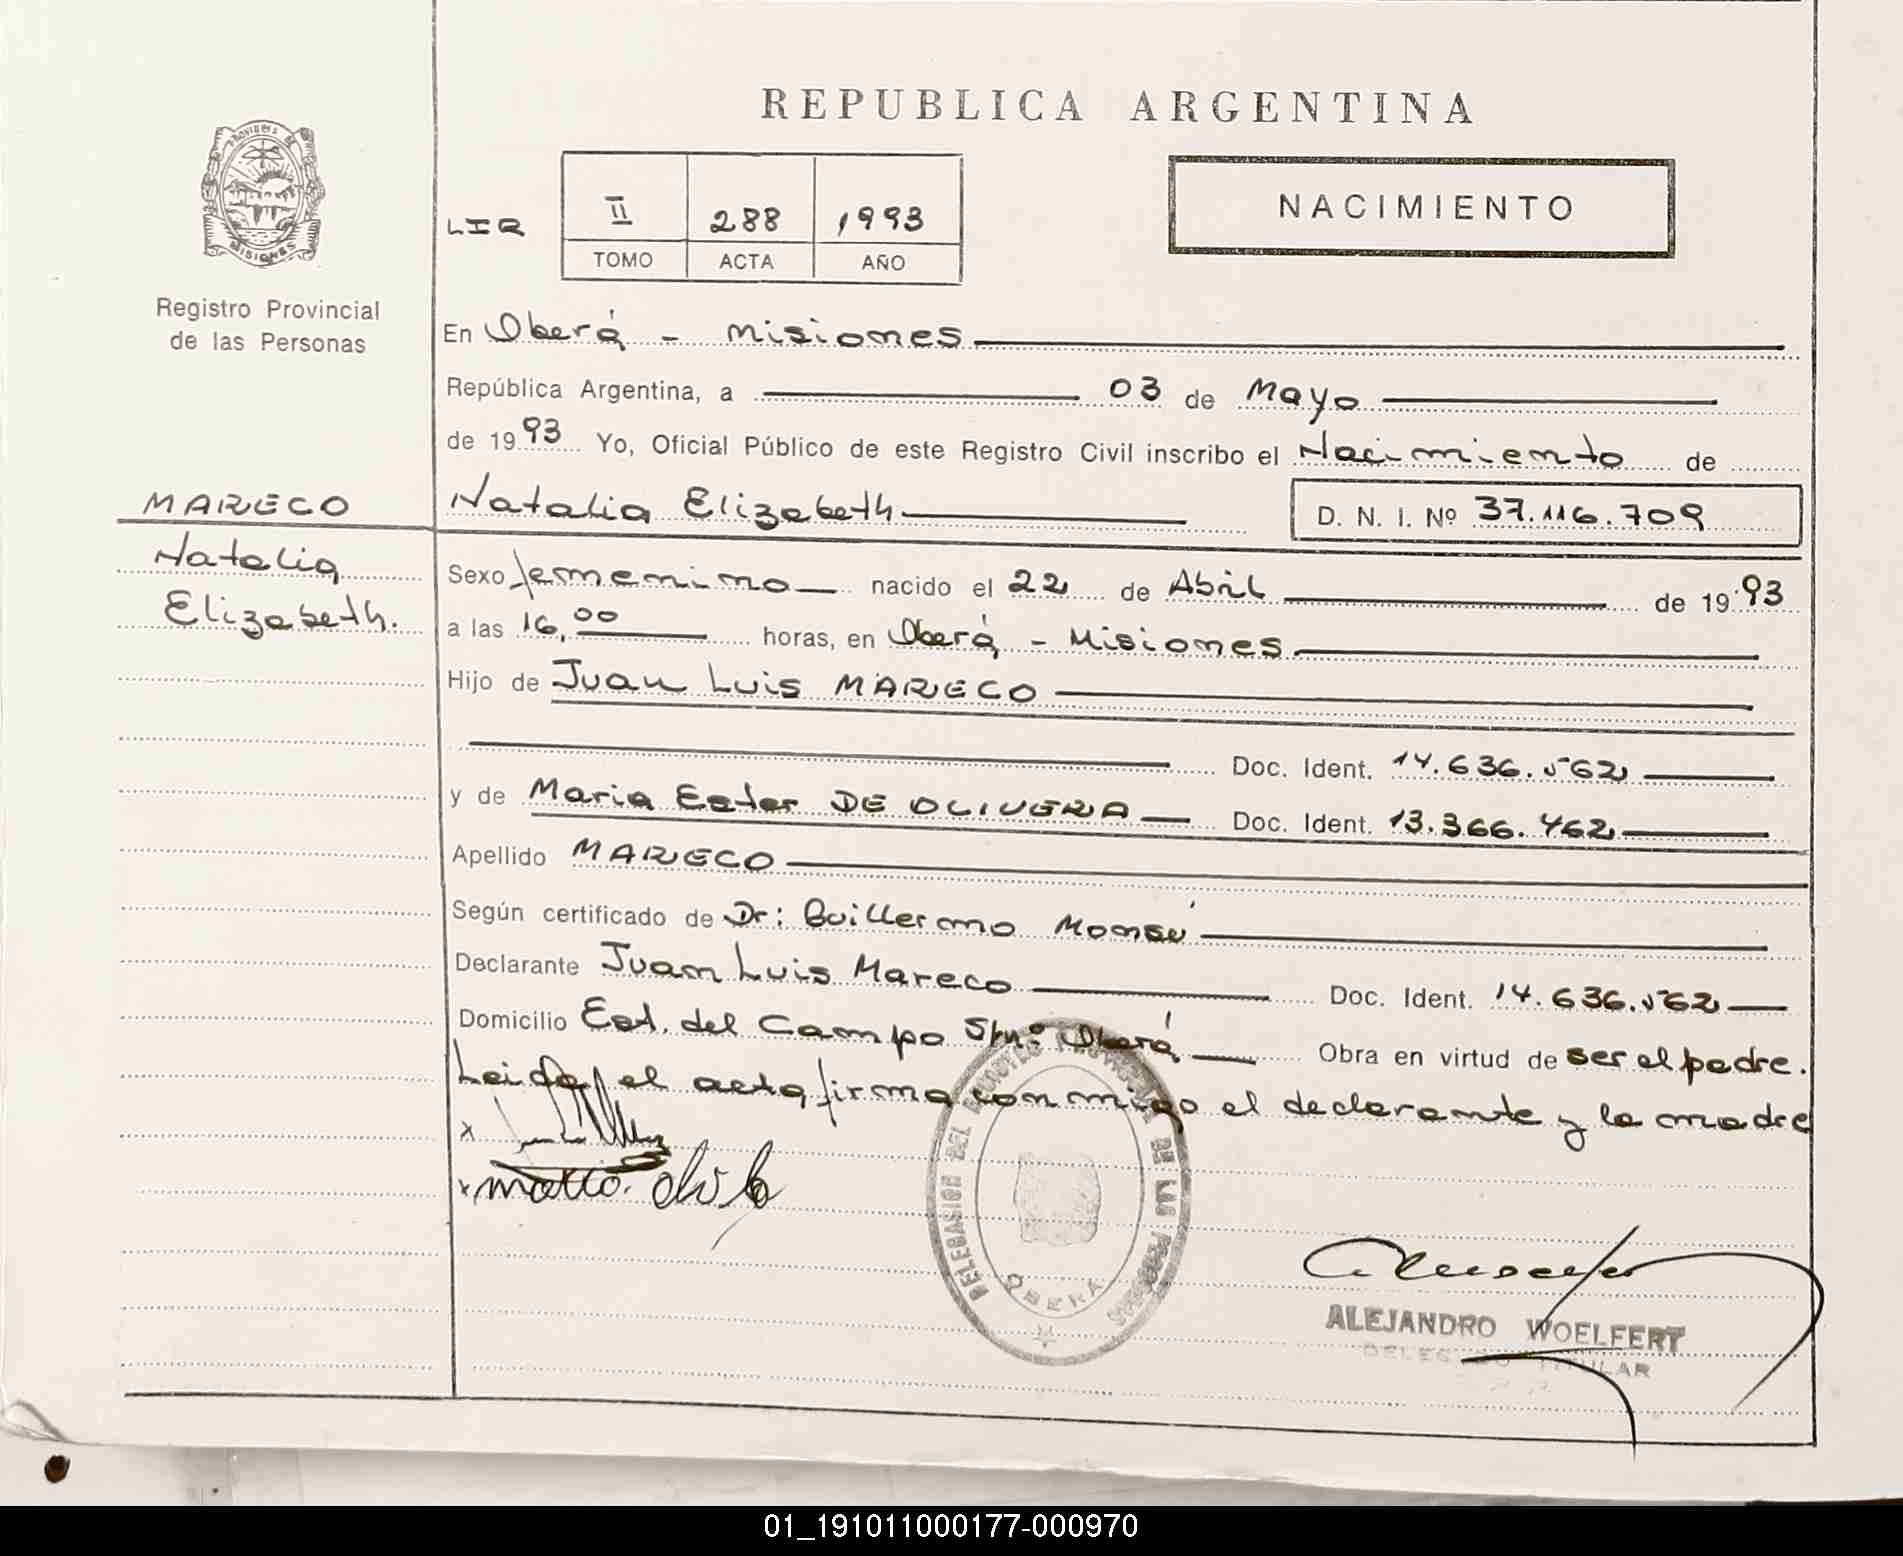 REPUBLICA ARGENTINA
PROVINCIA DE
MISIONES
Registro Provincial
de las Personas
LIR
II 288 1993
TOMO ACTA AÑO
NACIMIENTO
En Oberá - Misiones
República Argentina, a 03 de Mayo
de 1993 Yo, Oficial Público de este Registro Civil inscribo el Nacimiento de
MARECO
Natalia
Elizabeth.
Natalia Elizabeth D. N. I. Nº 37.116.709
Sexo femenino nacido el 22 de Abril de 1993
a las 16,00 horas, en Oberá - Misiones
Hijo de Juan Luis MARECO
Doc. Ident. 14.636.562
y de Maria Ester DE OLIVERA Doc. Ident. 13.366.462
Apellido MARECO
Según certificado de Dr: Guillermo
Declarante Juan Luis Mareco Doc. Ident. 14.636.562
Domicilio Est. del Campo S/nº Oberá Obra en virtud de ser el padre.
Leida el acta firma conmigo el declarante y la madre
x
x
DELEGACION DEL REGISTRO PROVINCIAL DE LAS PERSONAS
OBERA
ALEJANDRO WOELFERT
DELEGADO TITULAR
01_191011000177-000970